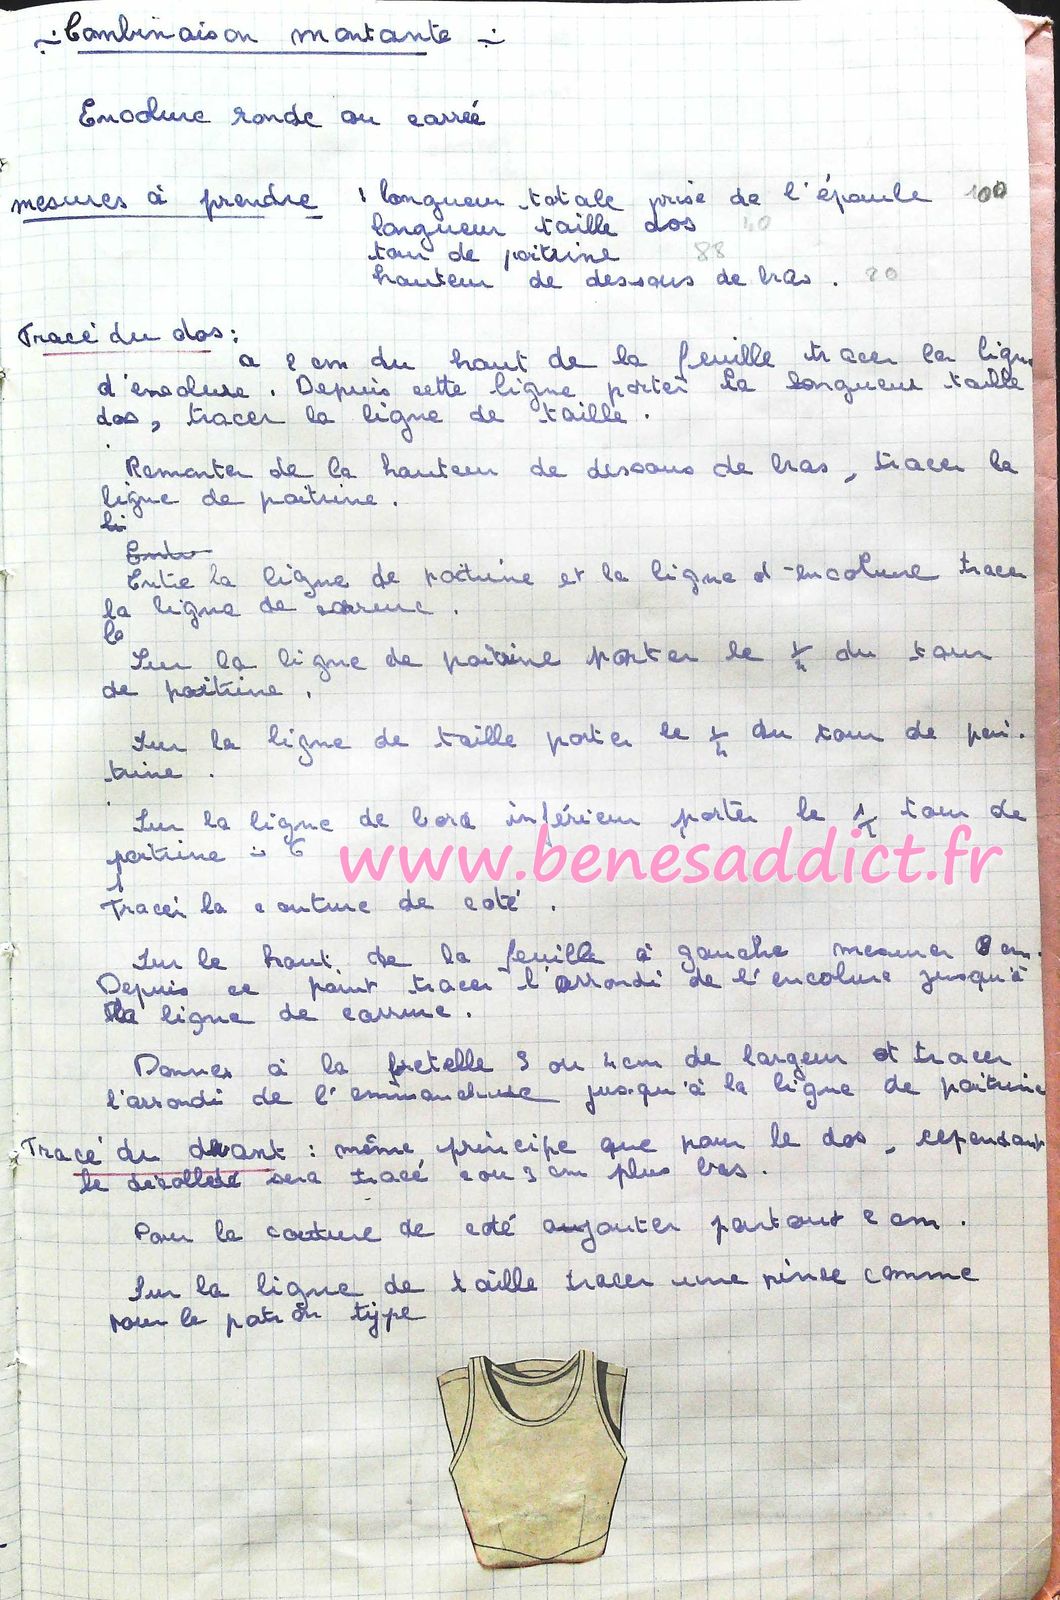 Combinaison montante
Encolure ronde ou carrée
mesures à prendre : longueur totale prise de l'épaule 100
longueur taille dos 40
tour de poitrine 88
hauteur de dessous de bras. 20
Tracé du dos :
a 2 cm du haut de la feuille tracer la ligne
d'encolure. Depuis cette ligne porter la longueur taille
dos, tracer la ligne de taille.
Remonter de la hauteur de dessous de bras, tracer la
ligne de poitrine.
li
Entre
Entre la ligne de poitrine et la ligne d'encolure tracer
la ligne de carrure.
la
Sur la ligne de poitrine porter le 1/4 du tour
de poitrine.
Sur la ligne de taille porter le 1/4 du tour de poi-
trine.
Sur la ligne de bord inférieur porter le tour de
poitrine 6
www.benesaddict.fr
Tracer la couture de coté.
Sur le haut de la feuille à gauche mesurer 8 cm.
Depuis ce point tracer l'arrondi de l'encolure jusqu'à
la ligne de carrure.
Donner à la bretelle 3 ou 4 cm de largeur et tracer
l'arrondi de l'emmanchure jusqu'à la ligne de poitrine
Tracé du devant : même principe que pour le dos, cependant
le décolleté sera tracé 2 ou 3 cm plus bas.
Pour la couture de coté aujouter partout 2 cm.
Sur la ligne de taille tracer une pince comme
pour le patron type